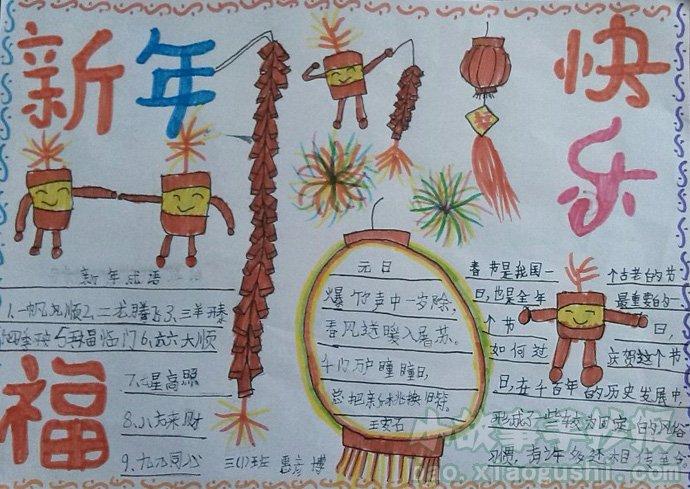 新年
快乐
福
新年成语
1.一帆风顺2,二龙腾飞3,三羊开泰
四季平安5五福临门6,六六大顺
7.七星高照
8.八方来财
9.九九同心
三(1)班
元日
爆竹声中一岁除,
春风送暖入屠苏。
千门万户瞳瞳日,
总把新桃换旧符。
王安石
春节是我国一个古老的节
日,也是全年最重要的一
个节日,
如何过庆贺这个节
日,在千百年的历史发展中,
形成了一些较为固定的风俗
习惯,有许多还相传至今。
小故事手抄报
bao.xiaogushi.com